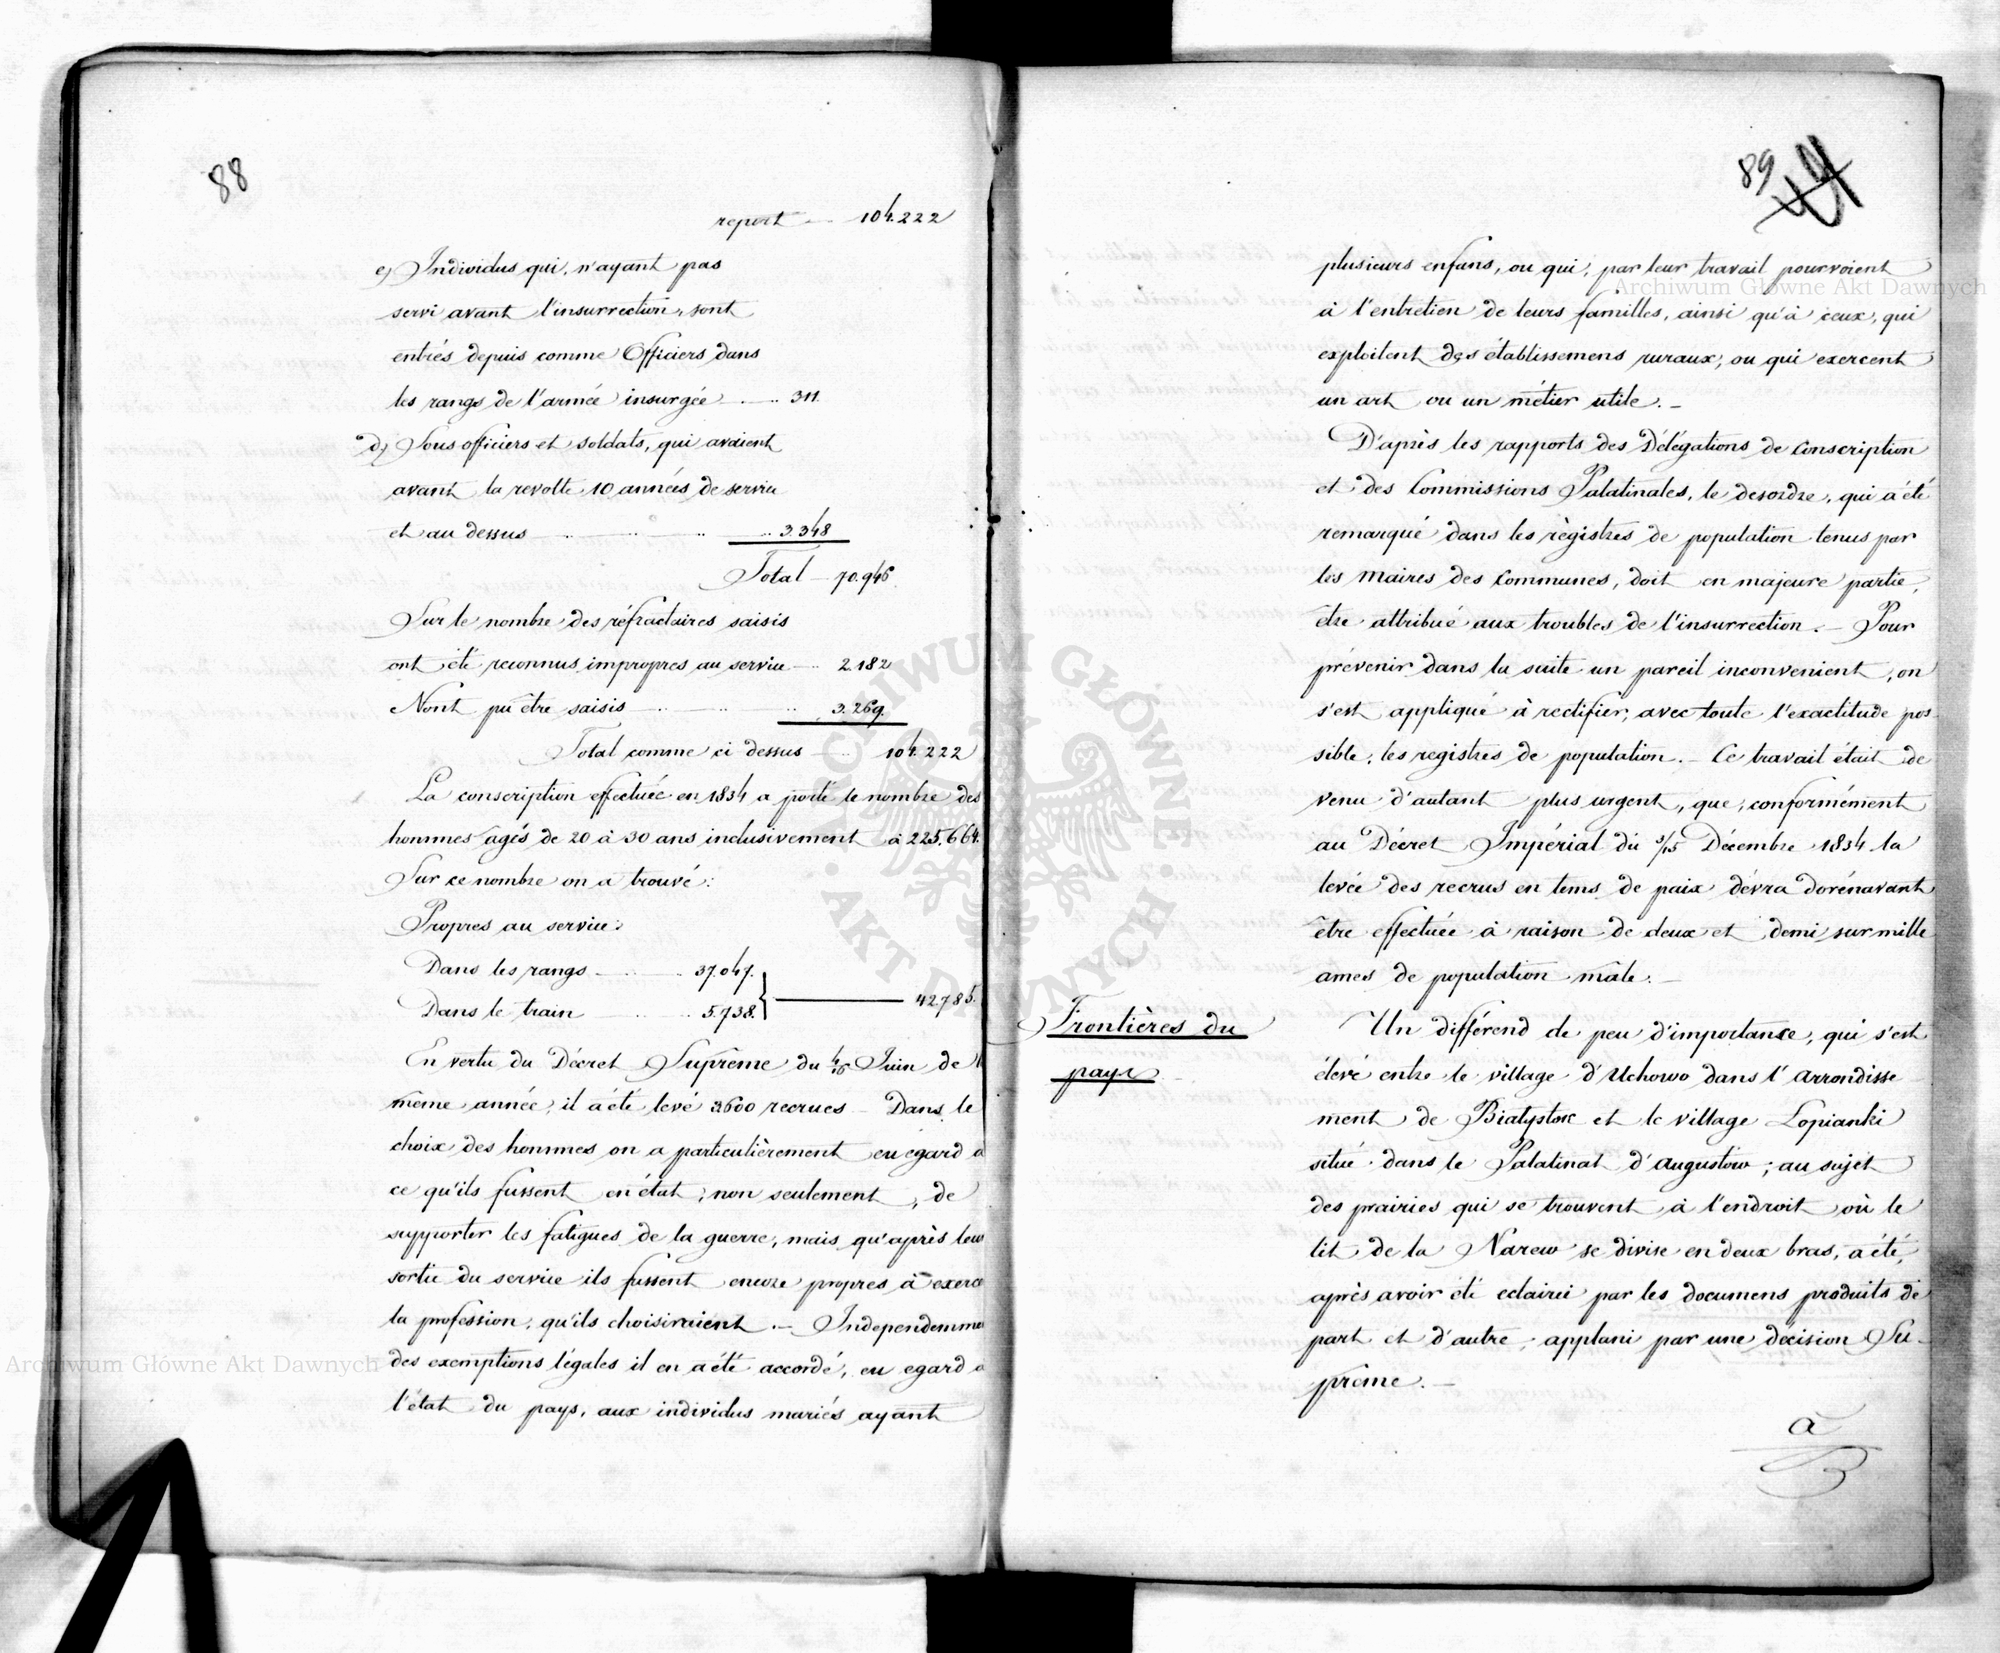 88
report — 104.222
c) Individus qui, n'ayant pas
servi avant l'insurrection, sont
entrés depuis comme Officiers dans
les rangs de l'armée insurgée — 311.
d) Sous officiers et soldats, qui avaient
avant la revolte 10 années de service
et au dessus — 3.348
Total — 70.946.
Sur le nombre des réfractaires saisis
ont été reconnus impropres au service — 2.182
N'ont pu être saisis — 3.269.
Total comme ci dessus — 104.222
La conscription effectuée en 1834 a porté le nombre des
hommes agés de 20 à 30 ans inclusivement à 225.664.
Sur ce nombre on a trouvé:
Propres au service:
Dans les rangs — 37.047.
Dans le train — 5.738. } — 42.785.
En vertu du Décret Suprême du 4/16 Juin de l
même année, il a été levé 3600 recrues — Dans le
choix des hommes on a particulièrement eu égard a
ce qu'ils fussent en état, non seulement, de
supporter les fatigues de la guerre, mais qu'après leur
sortie du service ils fussent encore propres à exerce
la profession, qu'ils choisiraient. — Independemme
des exemptions légales il en a été accordé, eu egard a
l'état du pays, aux individus mariés ayant
89
plusieurs enfans, ou qui, par leur travail pourvoient
à l'entretien de leurs familles, ainsi qu'à ceux, qui
exploitent des établissemens ruraux, ou qui exercent
un art ou un métier utile. —
D'après les rapports des Délégations de Conscription
et des Commissions Palatinales, le desordre, qui a été
remarqué dans les règistres de population tenus par
les Maires des Communes, doit en majeure partie,
être attribué aux troubles de l'insurrection. — Pour
prévenir dans la suite un pareil inconvenient, on
s'est appliqué à rectifier, avec toute l'exactitude pos-
sible, les registres de population. — Ce travail était de
venu d'autant plus urgent, que, conformément
au Décret Impérial du 3/15 Décembre 1834 la
levée des recrus en tems de paix dévra dorénavant
être effectuée à raison de deux et demi sur mille
ames de population mâle. —
Frontières du
pays
Un différend de peu d'importance, qui s'est
élevé entre le village d'Uchowo dans l'Arrondisse
ment de Białystok et le village Łopianki
situé dans le Palatinat d'Augustow, au sujet
des prairies qui se trouvent à l'endroit où le
lit de la Narew se divise en deux bras, a été,
après avoir été eclairci par les documens produits de
part et d'autre, applani par une décision Su-
prême. —
a
Archiwum Główne Akt Dawnych
Archiwum Główne Akt Dawnych
ARCHIWUM GŁÓWNE · AKT DAWNYCH ·